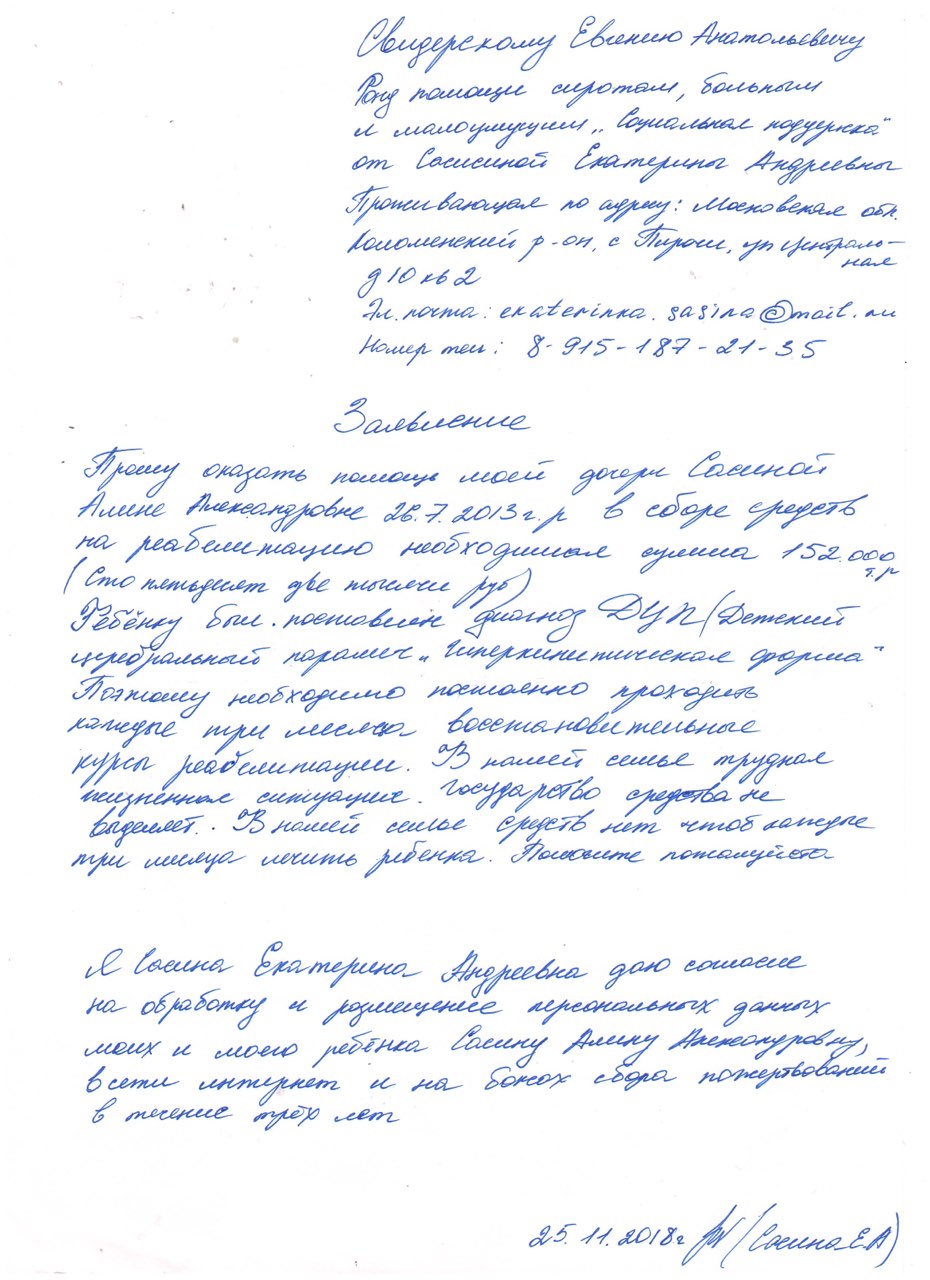 Свидерскому Евгению Анатольевичу
Фонд помощи сиротам, больным
и малоимущим „Социальная поддержка"
от Сосисиной Екатерины Андреевны
Проживающая по адресу: Московская обл.
Коломенский р-он, с Пирочи, ул Централь-
ная
д 10 кв 2
Эл. почта: ekaterinka.sasina@mail.ru
Номер тел: 8-915-187-21-35
Заявление
Прошу оказать помощь моей дочери Сасиной
Алине Александровне 26.7.2013г.р в сборе средств
на реабелитацию необходимая сумма 152.000
т.р
(Сто пятьдесят две тысячи руб)
Ребёнку был поставлен диагноз ДЦП (Детский
церебральный паралич „Гиперкинитическая форма"
Поэтому необходимо постоянно проходить
каждые три месяца восстановительные
курсы реабелитации. В нашей семье трудная
жизненная ситуация. Государство средства не
выделяет. В нашей семье средств нет чтоб каждые
три месяца лечить ребенка. Помогите пожалуйста
Я Сасина Екатерина Андреевна даю согласие
на обработку и размещение персональных данных
моих и моего ребёнка Сасину Алину Александровну,
в сети интернет и на боксах сбора пожертвований
в течение трёх лет
25.11.2018г (Сасина Е.А)